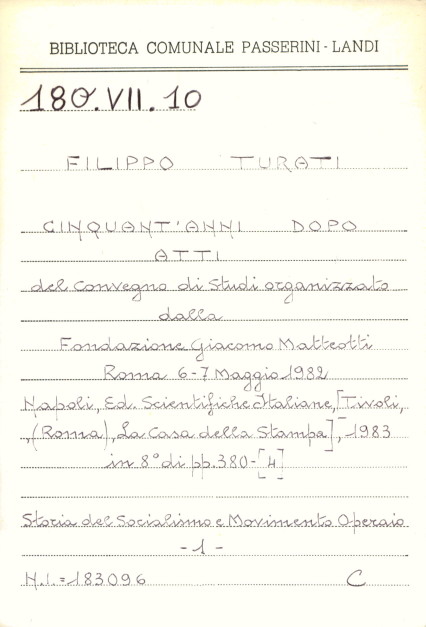 BIBLIOTECA COMUNALE PASSERINI - LANDI
180.VII.10
FILIPPO TURATI
CINQUANT'ANNI DOPO
ATTI
del convegno di Studi organizzato
dalla
Fondazione Giacomo Matteotti
Roma 6-7 Maggio 1982
Napoli, Ed. Scientifiche Italiane, [Tivoli,
,(Roma), La Casa della Stampa], 1983
in 8° di pp. 380-[4]
Storia del Socialimo e Movimento Operaio
- 1 -
N.I. = 183096 C